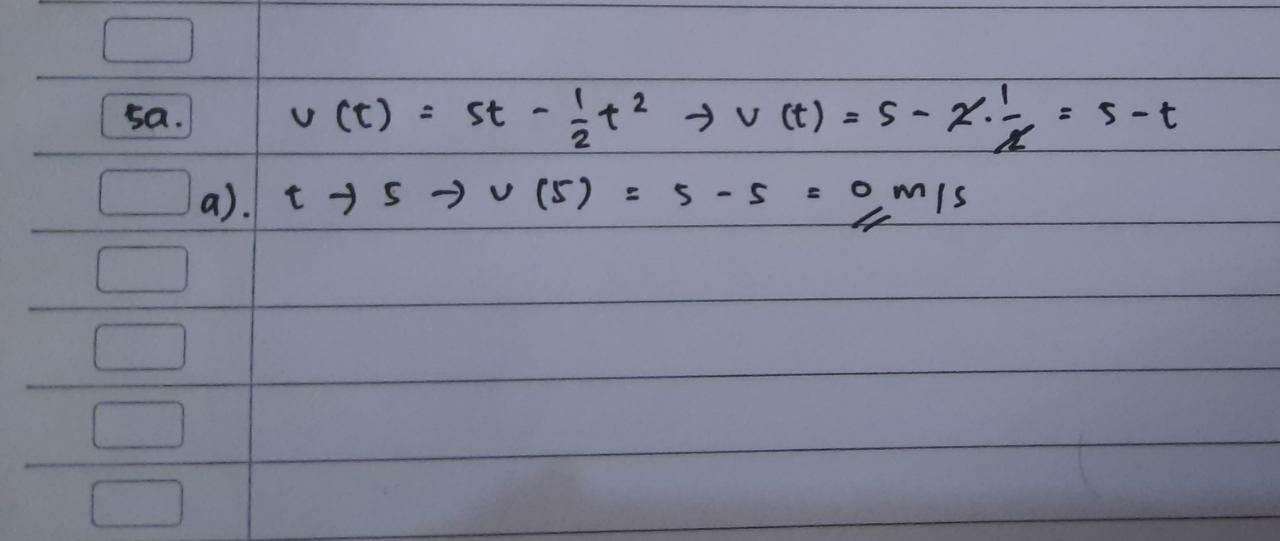 5a. v (t) = 5t - 1/2 t² → v (t) = 5 - 2 · 1/2 = 5 - t
a). t → 5 → v (5) = 5 - 5 = 0 m/s